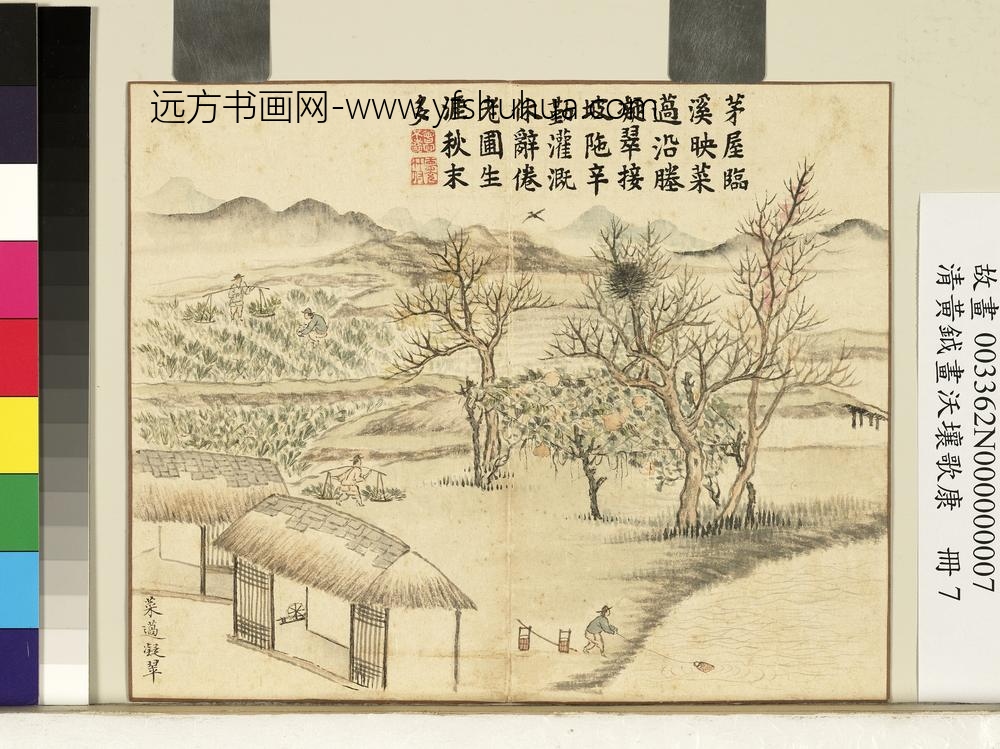 远方书画网-www.yfshuhua.com
茅屋臨
溪映菜
薖沿塍
翠接
坡陀辛
勤灌溉
休辭倦
老圃生
涯秋末
多
菜薖凝翠
故畫 003362N000000007
清黃鉞畫沃壤歌康 冊 7